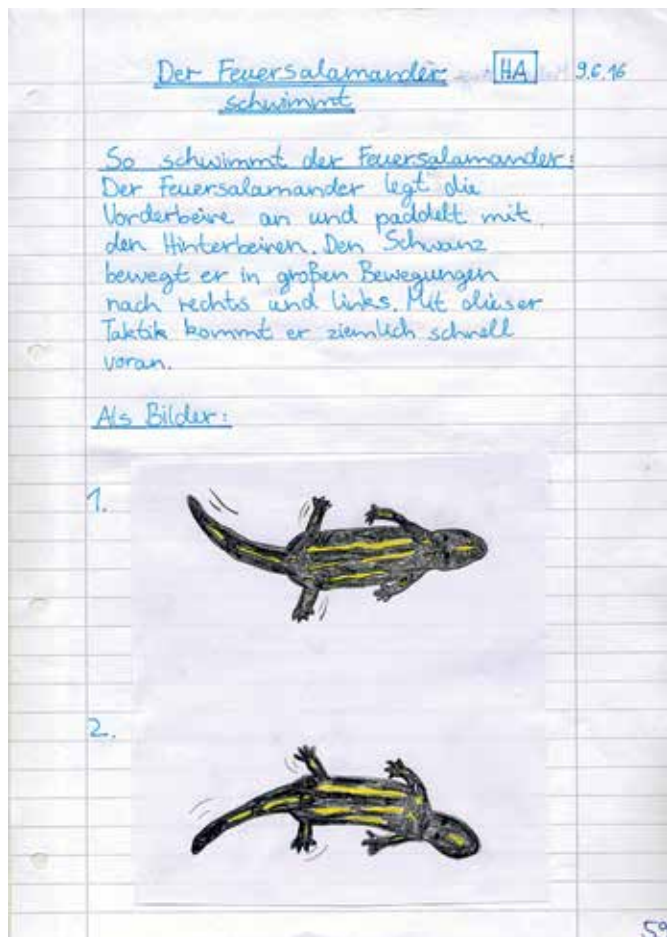 Der Feuersalamander HA 9.6.16
schwimmt
So schwimmt der Feuersalamander:
Der Feuersalamander legt die
Vorderbeine an und paddelt mit
den Hinterbeinen. Den Schwanz
bewegt er in großen Bewegungen
nach rechts und links. Mit dieser
Taktik kommt er ziemlich schnell
voran.
Als Bilder:
1.
2.